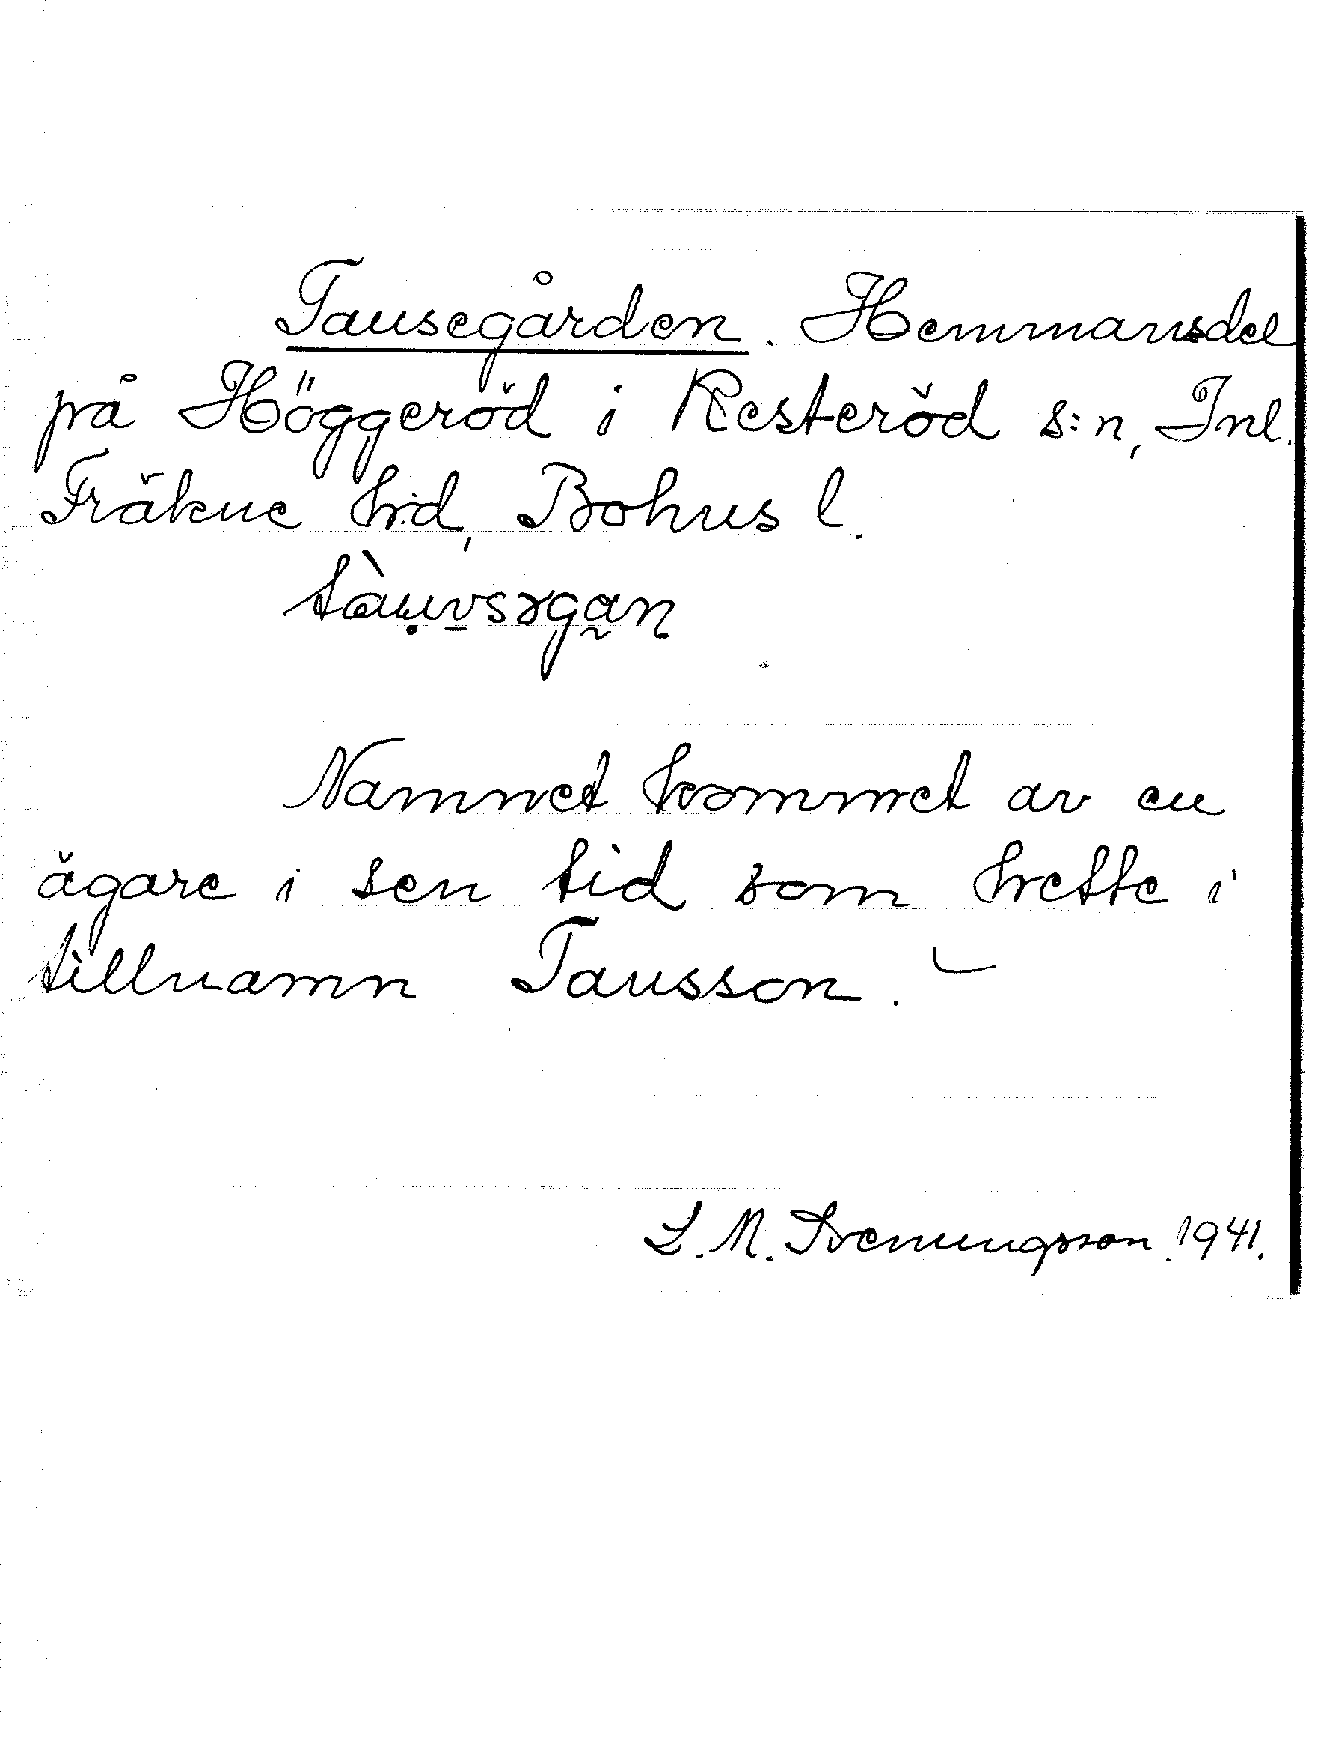 Tausegården. Hemmansdel
på Höggeröd i Resteröd s:n, Inl.
Fräkne hrd, Bohus l.
Namnet kommet av en
ägare i sen tid som hette i
tillnamn Tausson.
L. M. Svenungsson. 1941.